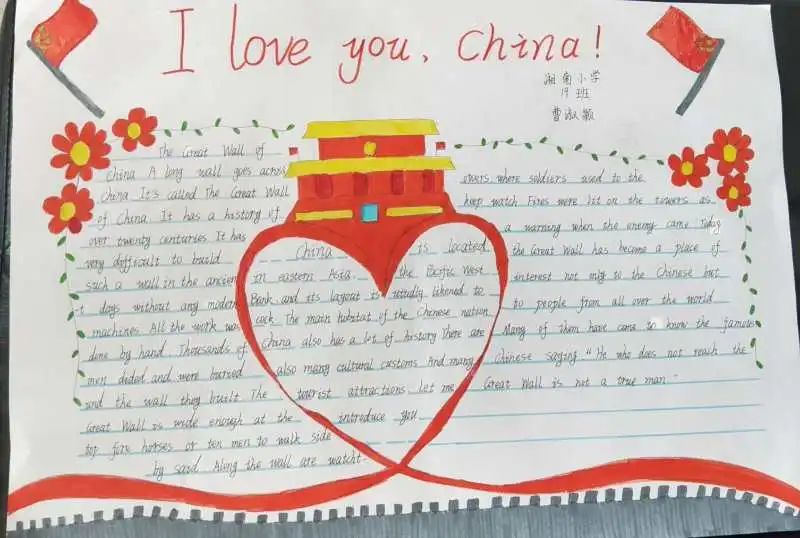 I love you, China!
湘南小学
19班
曹淑颖
The Great Wall of
China A long wall goes across
China It's called The Great Wall
of China It has a history of
over twenty centuries It has
very difficult to build
such a wall in the ancien
t days without any modern
machines. All the work was
done by hand Thousands of
men dided and were burried
und the wall they built The
Great Wall is wide enough at the
top five horses or ten men to walk side
by said Along the wall are watcht-
China is located
in eastern Asia. the Pacific West
Bank and its layout is likened to
cock. The main habitat of the Chinese nation
China also has a lot of history There are
also many cultural customs And many
tourist attractions let me
introduce you
owers, where soldiers used to the
keep watch Fires were lit on the towers as
a warning when the enemy came Today
the Great Wall has become a place of
interest not only to the Chinese but
to people from all over the world
Many of them have come to know the famous
Chinese saying "He who does not reach the
Great Wall is not a true man"